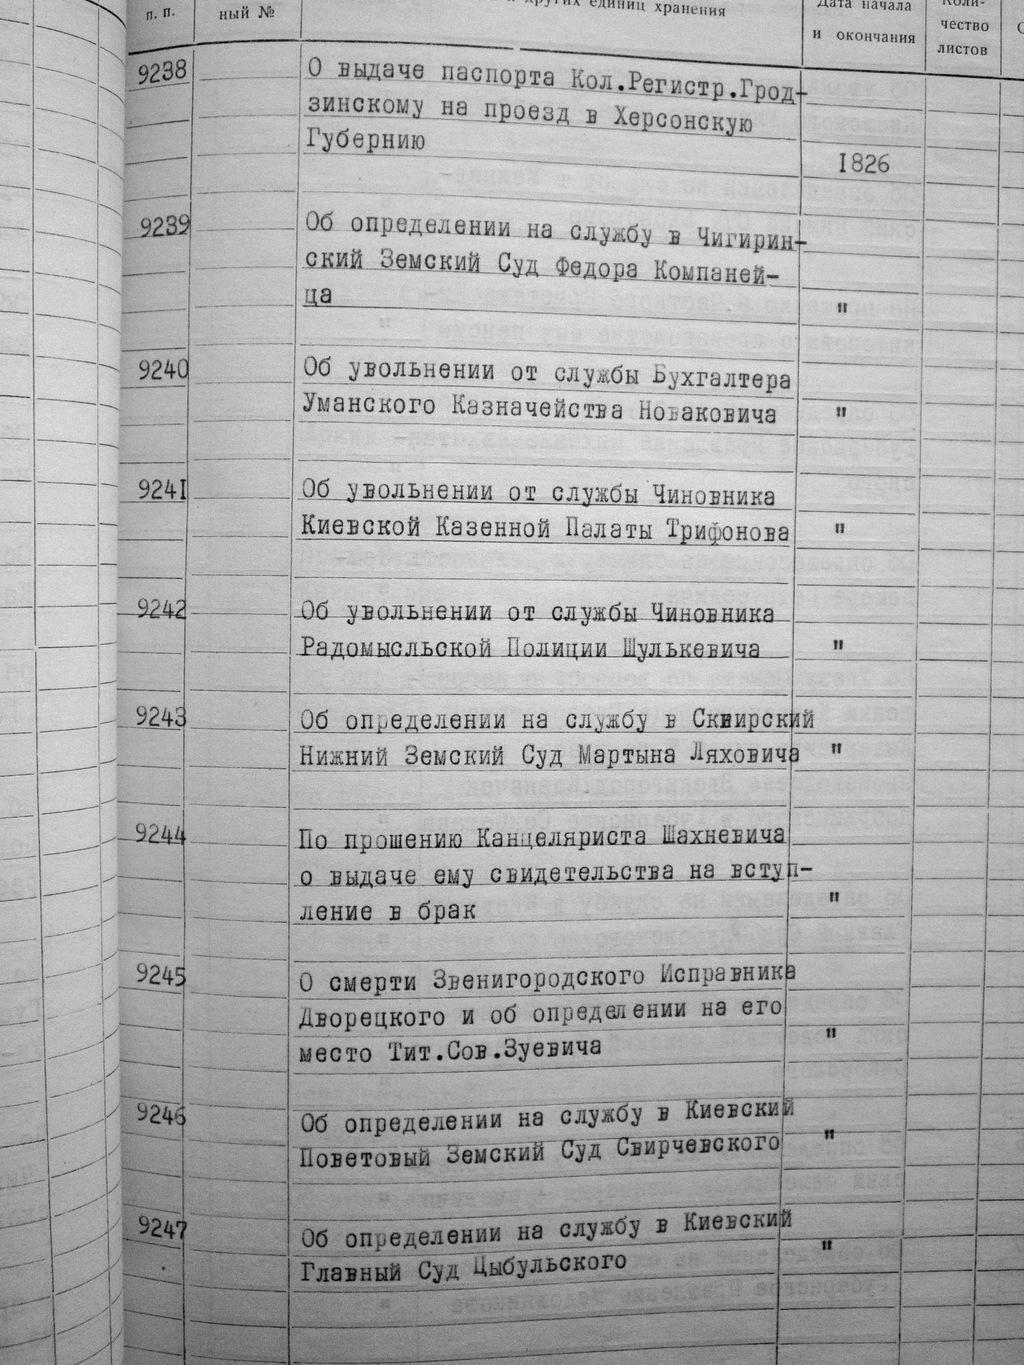 п. п.
ный №
других единиц хранения
Дата начала
и окончания
Коли-
чество
листов
9238
О выдаче паспорта Кол.Регистр.Грод-
зинскому на проезд в Херсонскую
Губернию
1826
9239
Об определении на службу в Чигирин-
ский Земский Суд Федора Компаней-
ца
"
9240
Об увольнении от службы Бухгалтера
Уманского Казначейства Новаковича
"
9241
Об увольнении от службы Чиновника
Киевской Казенной Палаты Трифонова
"
9242
Об увольнении от службы Чиновника
Радомысльской Полиции Шулькевича
"
9243
Об определении на службу в Сквирский
Нижний Земский Суд Мартына Ляховича
"
9244
По прошению Канцеляриста Шахневича
о выдаче ему свидетельства на вступ-
ление в брак
"
9245
О смерти Звенигородского Исправника
Дворецкого и об определении на его
место Тит.Сов.Зуевича
"
9246
Об определении на службу в Киевский
Поветовый Земский Суд Свирчевского
"
9247
Об определении на службу в Киевский
Главный Суд Цыбульского
"